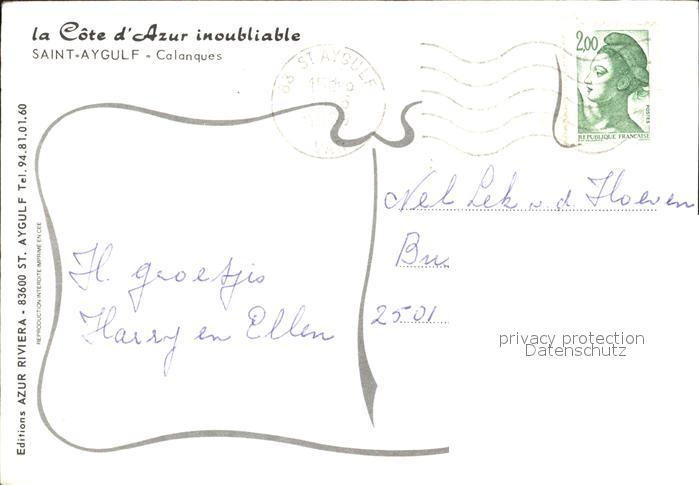 la Côte d'Azur inoubliable
SAINT-AYGULF - Calanques
83 ST AYGULF
VAR
2,00
POSTES
REPUBLIQUE FRANÇAISE
Editions AZUR RIVIERA - 83600 ST. AYGULF Tel. 94.81.01.60
REPRODUCTION INTERDITE IMPRIMÉ EN CEE
H. groetjis
Harry en Ellen
Nel Lek v. d. Hoeven
2501
privacy protection
Datenschutz